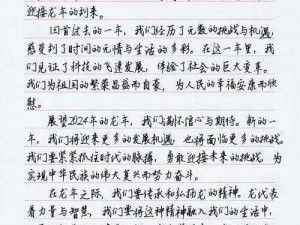 迎接龙年的到来。
回首过去的一年，我们经历了无数的挑战与机遇，
感受到了时间的无情与生活的多彩。在这一年里，我
们见证了科技的飞速发展，体验了社会的巨大变革。
我们为祖国的繁荣昌盛而自豪，为人民的幸福安康而欣
慰。
展望2024年的龙年，我们满怀信心与期待。新的一
年，我们将迎来更多的发展机遇，也将面临更多的挑战。
我们要紧紧抓住时代的脉搏，勇敢迎接未来的挑战，为
实现中华民族的伟大复兴而努力奋斗。
在龙年之际，我们要传承和弘扬龙的精神。龙代表
着力量与智慧，我们要将这种精神融入我们的生活中，